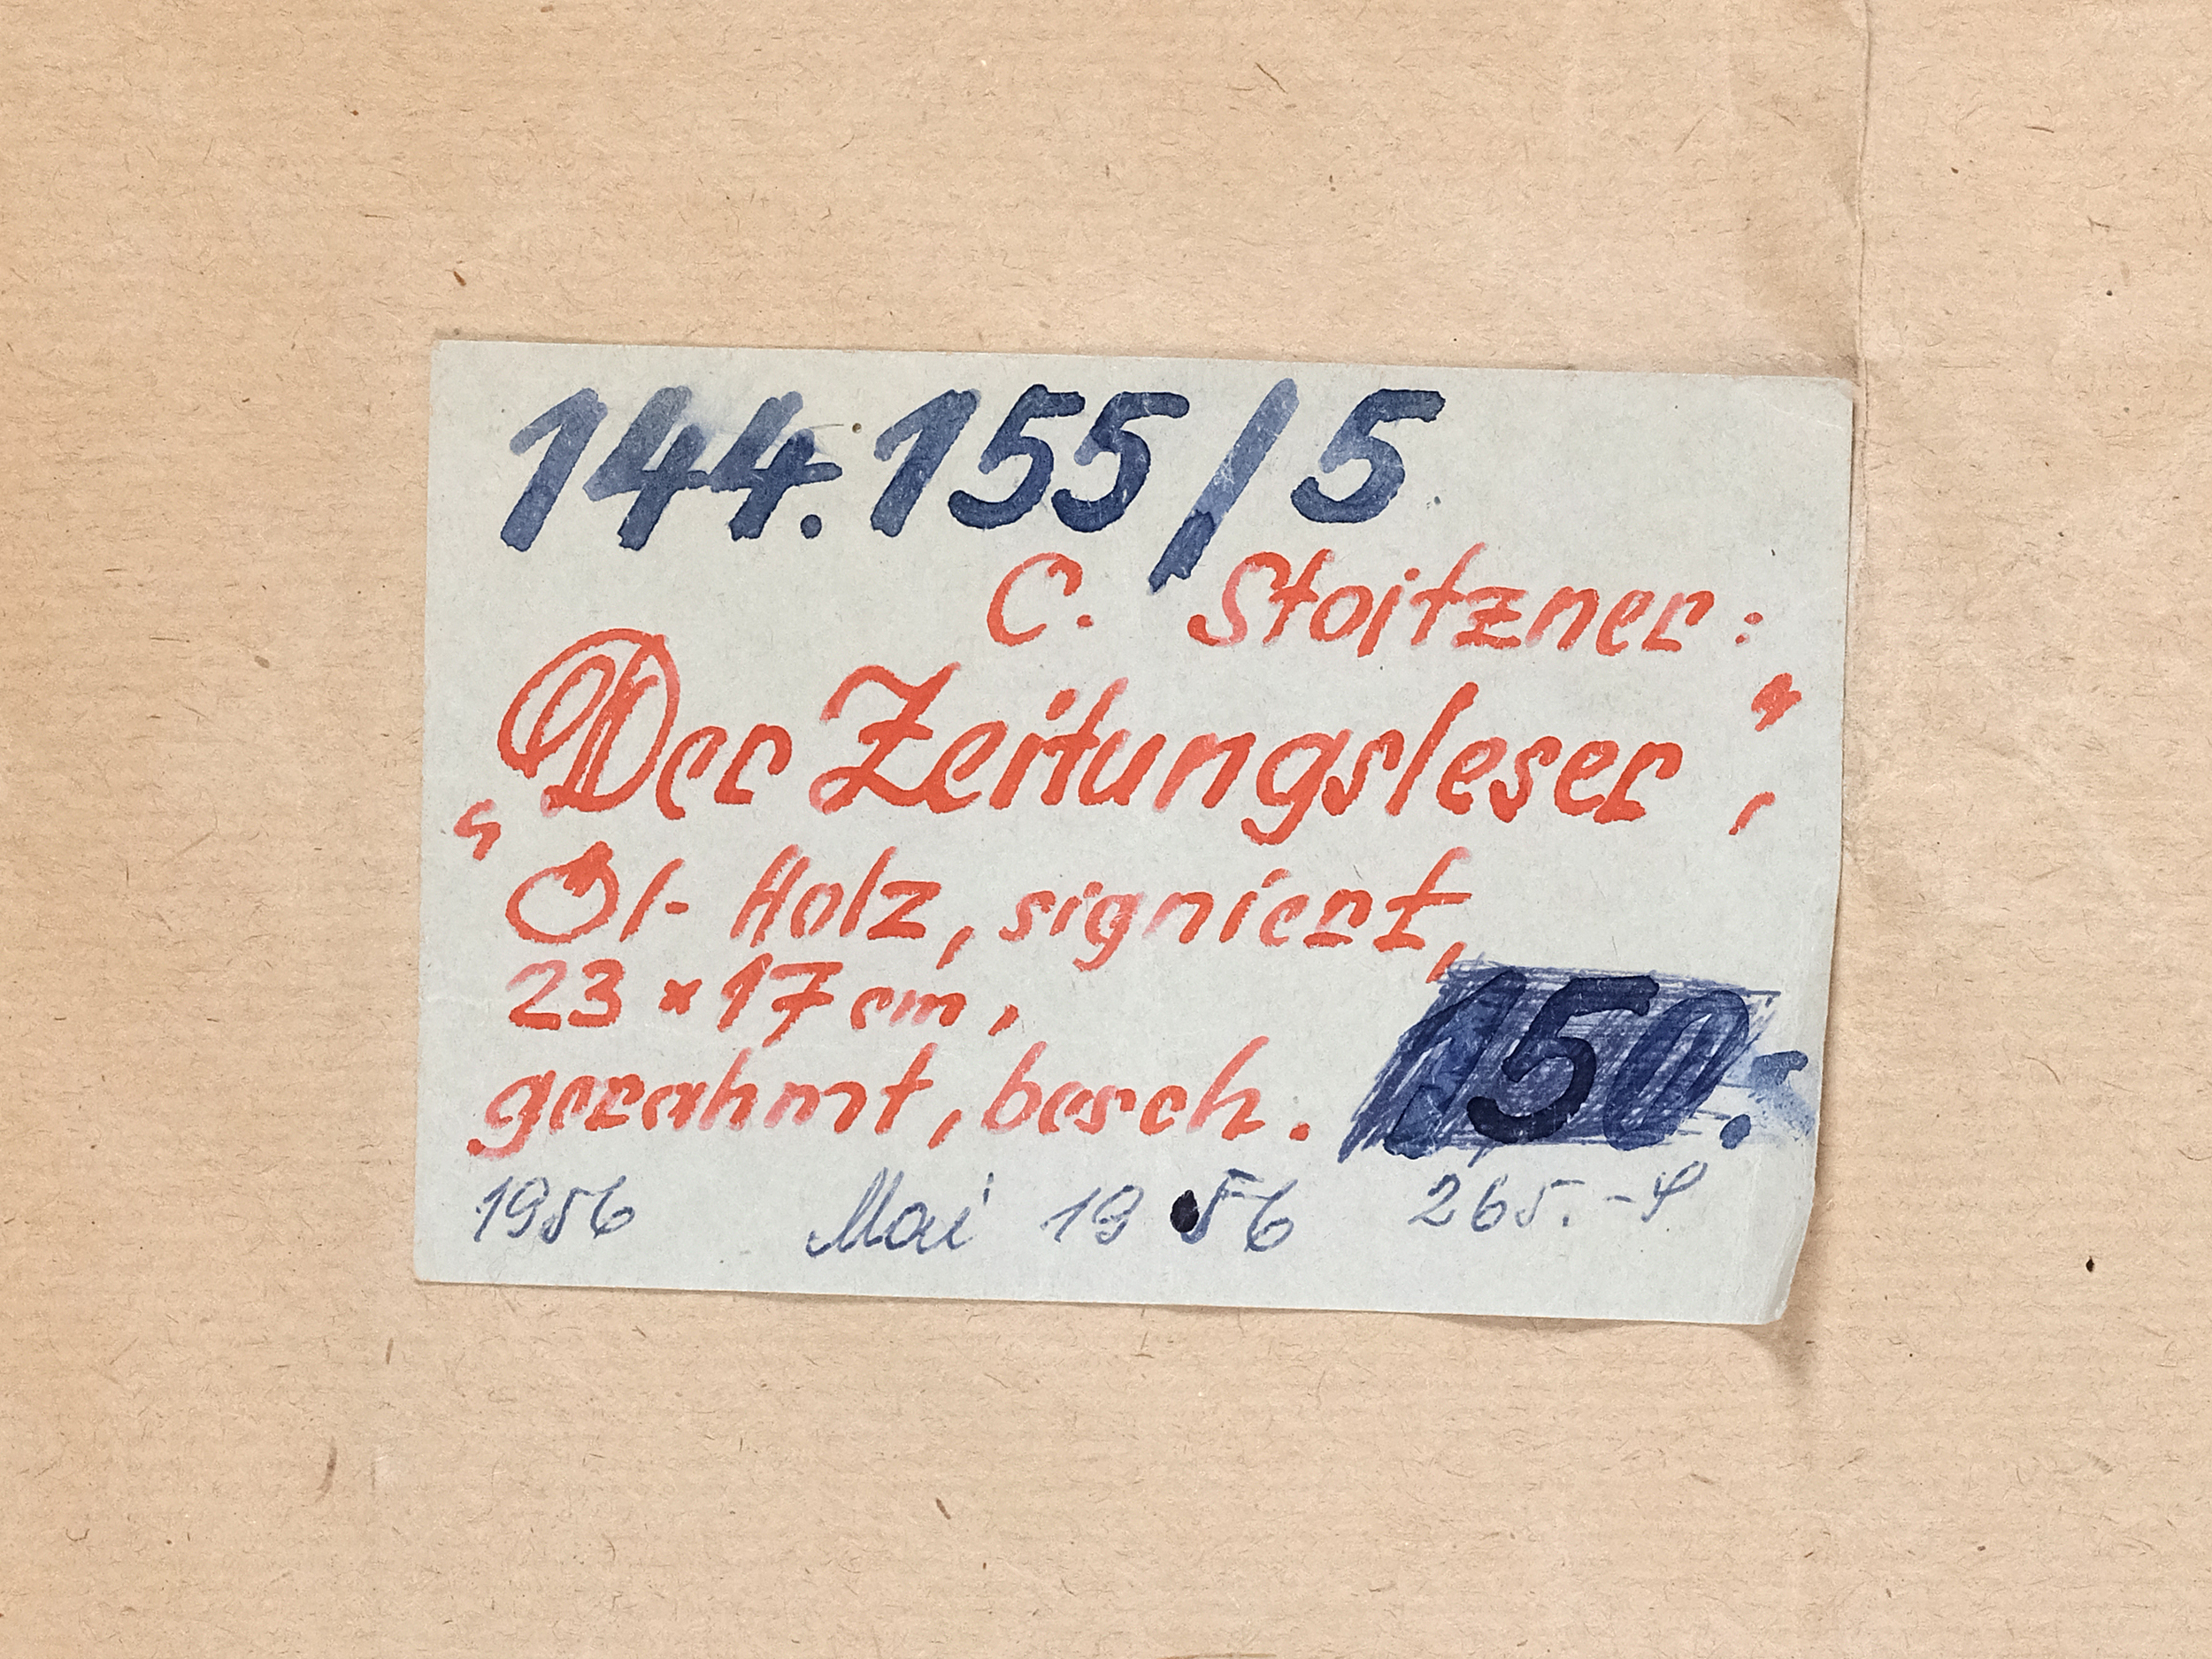 144.155/5
C. Stoitzner:
„Der Zeitungsleser“,
Öl-Holz, signiert,
23 x 17 cm,
gerahmt, besch. 150.-
1956 Mai 1956 265.-S